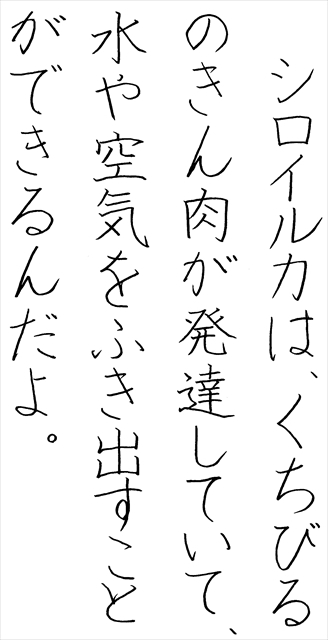 シロイルカは、くちびる
のきん肉が発達していて、
水や空気をふき出すこと
ができるんだよ。